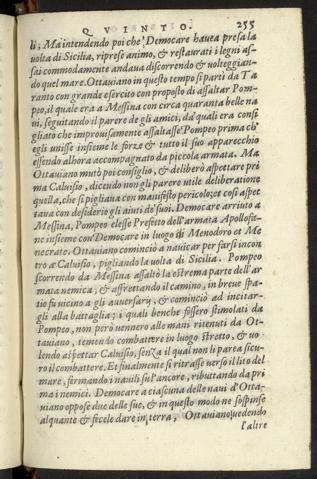 QVINTO. 255
li, Ma intendendo poi che Democare hauea presa la
uolta di Sicilia, riprese animo, & restaurati i legni as-
sai commodamente andaua discorrendo & uolteggian-
do quel mare. Ottauiano in questo tempo si partì da Ta
ranto con grande esercito con proposito di assaltar Pom-
peo, il quale era a Messina con circa quaranta belle na
ui, seguitando il parere de gli amici, da' quali era consi
gliato che improuisamente assaltasse Pompeo prima ch'
egli unisse insieme le forze & tutto il suo apparecchio
essendo allhora accompagnato da piccola armata. Ma
Ottauiano mutò poi consiglio, & deliberò aspettare pri
ma Caluisio, dicendo non gli parere utile deliberatione
quella, che si pigliaua con manifesto pericolo; et così aspet
taua con desiderio gli aiuti de' suoi. Democare arriuto a
Messina, Pompeo elesse Prefetto dell'armata Apollofa-
ne insieme con Democare in luogo di Menodoro et Me
necrate. Ottauiano cominciò a nauicar per farsi incon
tro a Caluisio, pigliando la uolta di Sicilia. Pompeo
scorrendo da Messina assaltò la estrema parte dell'ar
mata nemica, & affrettando il camino, in breue spa-
tio fu uicino a gli auuersarij, & cominciò ad incitar-
gli alla battaglia; i quali benche fossero stimolati da
Pompeo, non però uennero alle mani ritenuti da Ot-
tauiano, temendo combattere in luogo stretto, & uo-
lendo aspettar Caluisio, senza il qual non li parea sicu-
ro il combattere. Et finalmente si ritrasse uerso il lito del
mare, firmando i nauili su l'ancore, ributtando da pri
ma i nemici. Democare a ciascuna delle naui d'Otta-
uiano oppose due delle sue, & in questo modo ne sospinse
alquante & fecele dare in terra, Ottauiano uedendo
l'altre